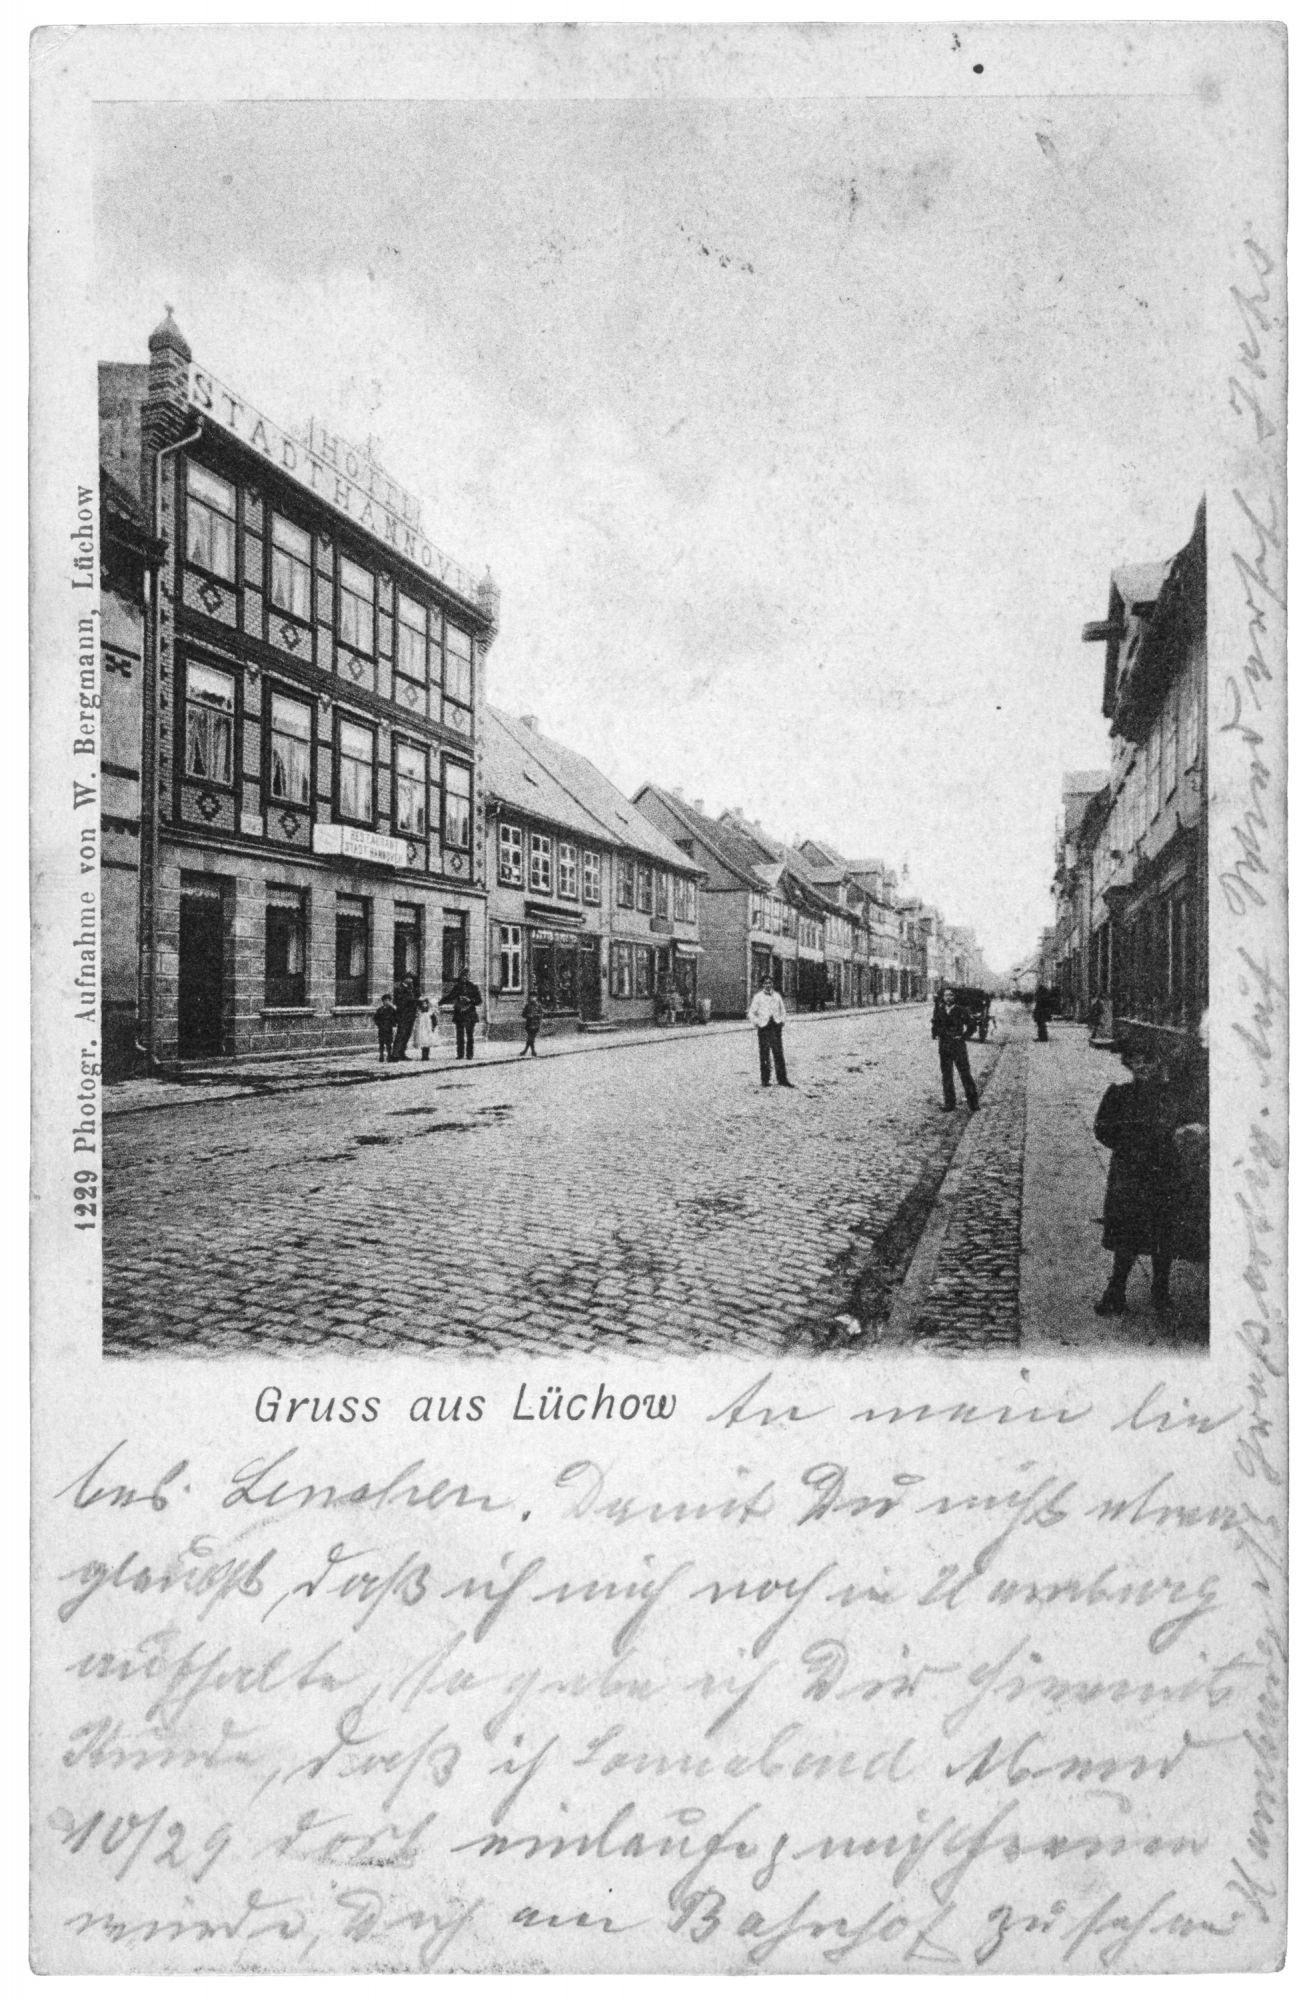 HOTEL
STADT HANNOVER
RESTAURANT
STADT HANNOVER
1229 Photogr. Aufnahme von W. Bergmann, Lüchow
Gruss aus Lüchow An mein lie
bes Lenchen. Damit Du nicht etwa
glaubst, daß ich mich noch in Hamburg
aufhalte, so gebe ich Dir hiermit
Kunde, daß ich Sonnabend Abend
10/29 dort einlaufe, mich freuen
würde, Dich am Bahnhof zu sehen